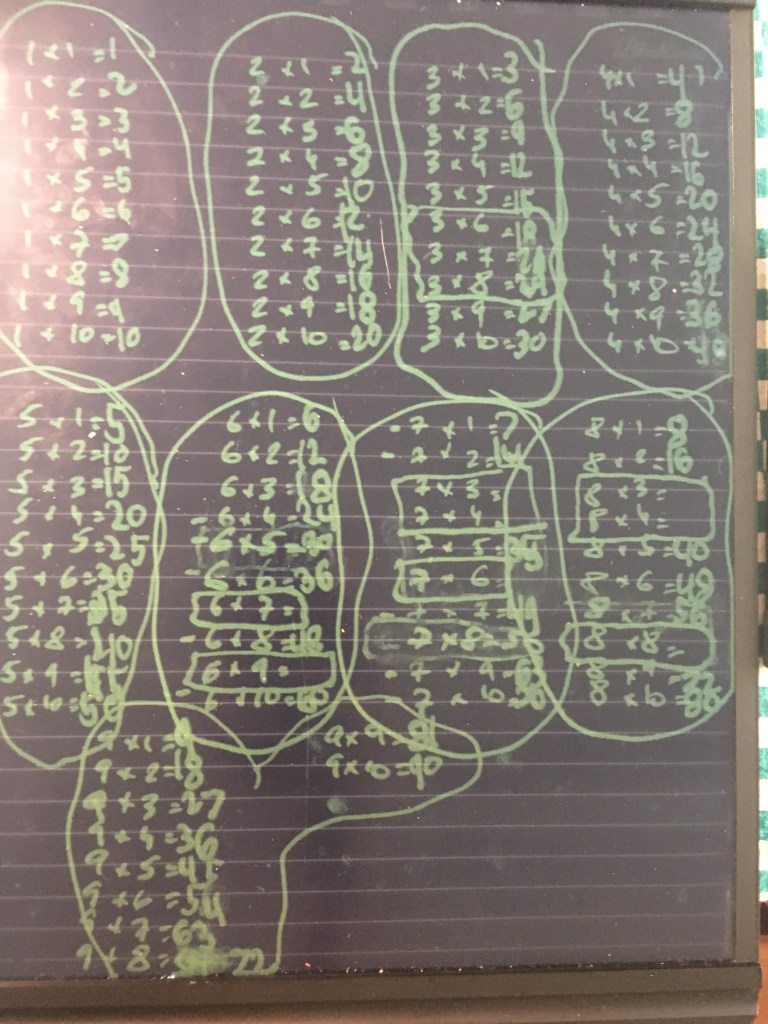 1 × 1 = 1
1 × 2 = 2
1 × 3 = 3
1 × 4 = 4
1 × 5 = 5
1 × 6 = 6
1 × 7 =
1 × 8 = 8
1 × 9 = 9
1 × 10 = 10
2 × 1 = 2
2 × 2 = 4
2 × 3 = 6
2 × 4 = 8
2 × 5 = 10
2 × 6 = 12
2 × 7 = 14
2 × 8 = 16
2 × 9 = 18
2 × 10 = 20
3 × 1 = 3
3 × 2 = 6
3 × 3 = 9
3 × 4 = 12
3 × 5 = 15
3 × 6 = 18
3 × 7 = 21
3 × 8 =
3 × 9 = 27
3 × 10 = 30
4 × 1 = 4
4 × 2 = 8
4 × 3 = 12
4 × 4 = 16
4 × 5 = 20
4 × 6 = 24
4 × 7 = 28
4 × 8 = 32
4 × 9 = 36
4 × 10 = 40
5 × 1 = 5
5 × 2 = 10
5 × 3 = 15
5 × 4 = 20
5 × 5 = 25
5 × 6 = 30
5 × 7 = 35
5 × 8 = 40
5 × 9 =
5 × 10 =
6 × 1 = 6
6 × 2 = 12
6 × 3 = 18
- 6 × 4 = 24
- 6 × 5 = 30
- 6 × 6 = 36
6 × 7 =
- 6 × 8 =
6 × 9 =
- 6 × 10 = 60
- 7 × 1 = 7
- 7 × 2 = 14
7 × 3 =
7 × 4 =
7 × 5 = 35
7 × 6 =
- 7 × 7 =
- 7 × 8 =
- 7 × 9 =
- 7 × 10 =
8 × 1 = 8
8 × 2 = 16
8 × 3 =
8 × 4 =
8 × 5 = 40
8 × 6 = 48
8 × 7 = 56
8 × 8 =
8 × 9 =
8 × 10 = 80
9 × 1 = 9
9 × 2 = 18
9 × 3 = 27
9 × 4 = 36
9 × 5 = 45
9 × 6 = 54
9 × 7 = 63
9 × 8 =
9 × 9 = 81
9 × 10 = 90